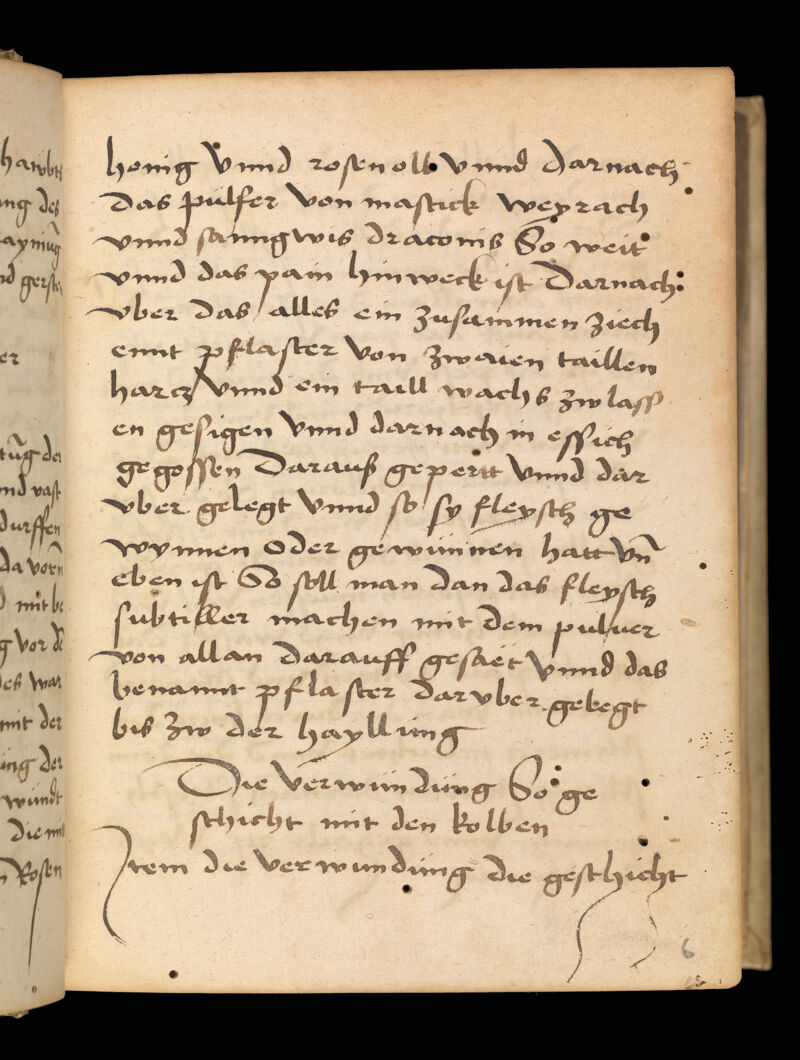 honig Vnnd rosenoll Vnnd darnach
das pulfer von mastick weyrach
vnnd sanngwis draconis So weit
vnnd das pain hinweck ist Darnach
vber das alles ein zusammen ziech
ennt pflaster von zwaien taillen
harcz Vnnd ein taill wachs zw lass
en gesigen Vnnd darnach in essich
gegossen Darauß gepertt Vnnd dar
vber gelegt Vnnd so sy fleysch ge
wynnen Oder gewunnen hatt Vn̄
eben ist So soll man dan das fleysch
subtiller machen mit dem puluer
von allan darauff gesäet Vnnd das
benannt pflaster dar vber gelegt
bis zw der hayllung
Die Verwundung So ge
schicht mit den kolben
Item die Verwundung die geschicht
6